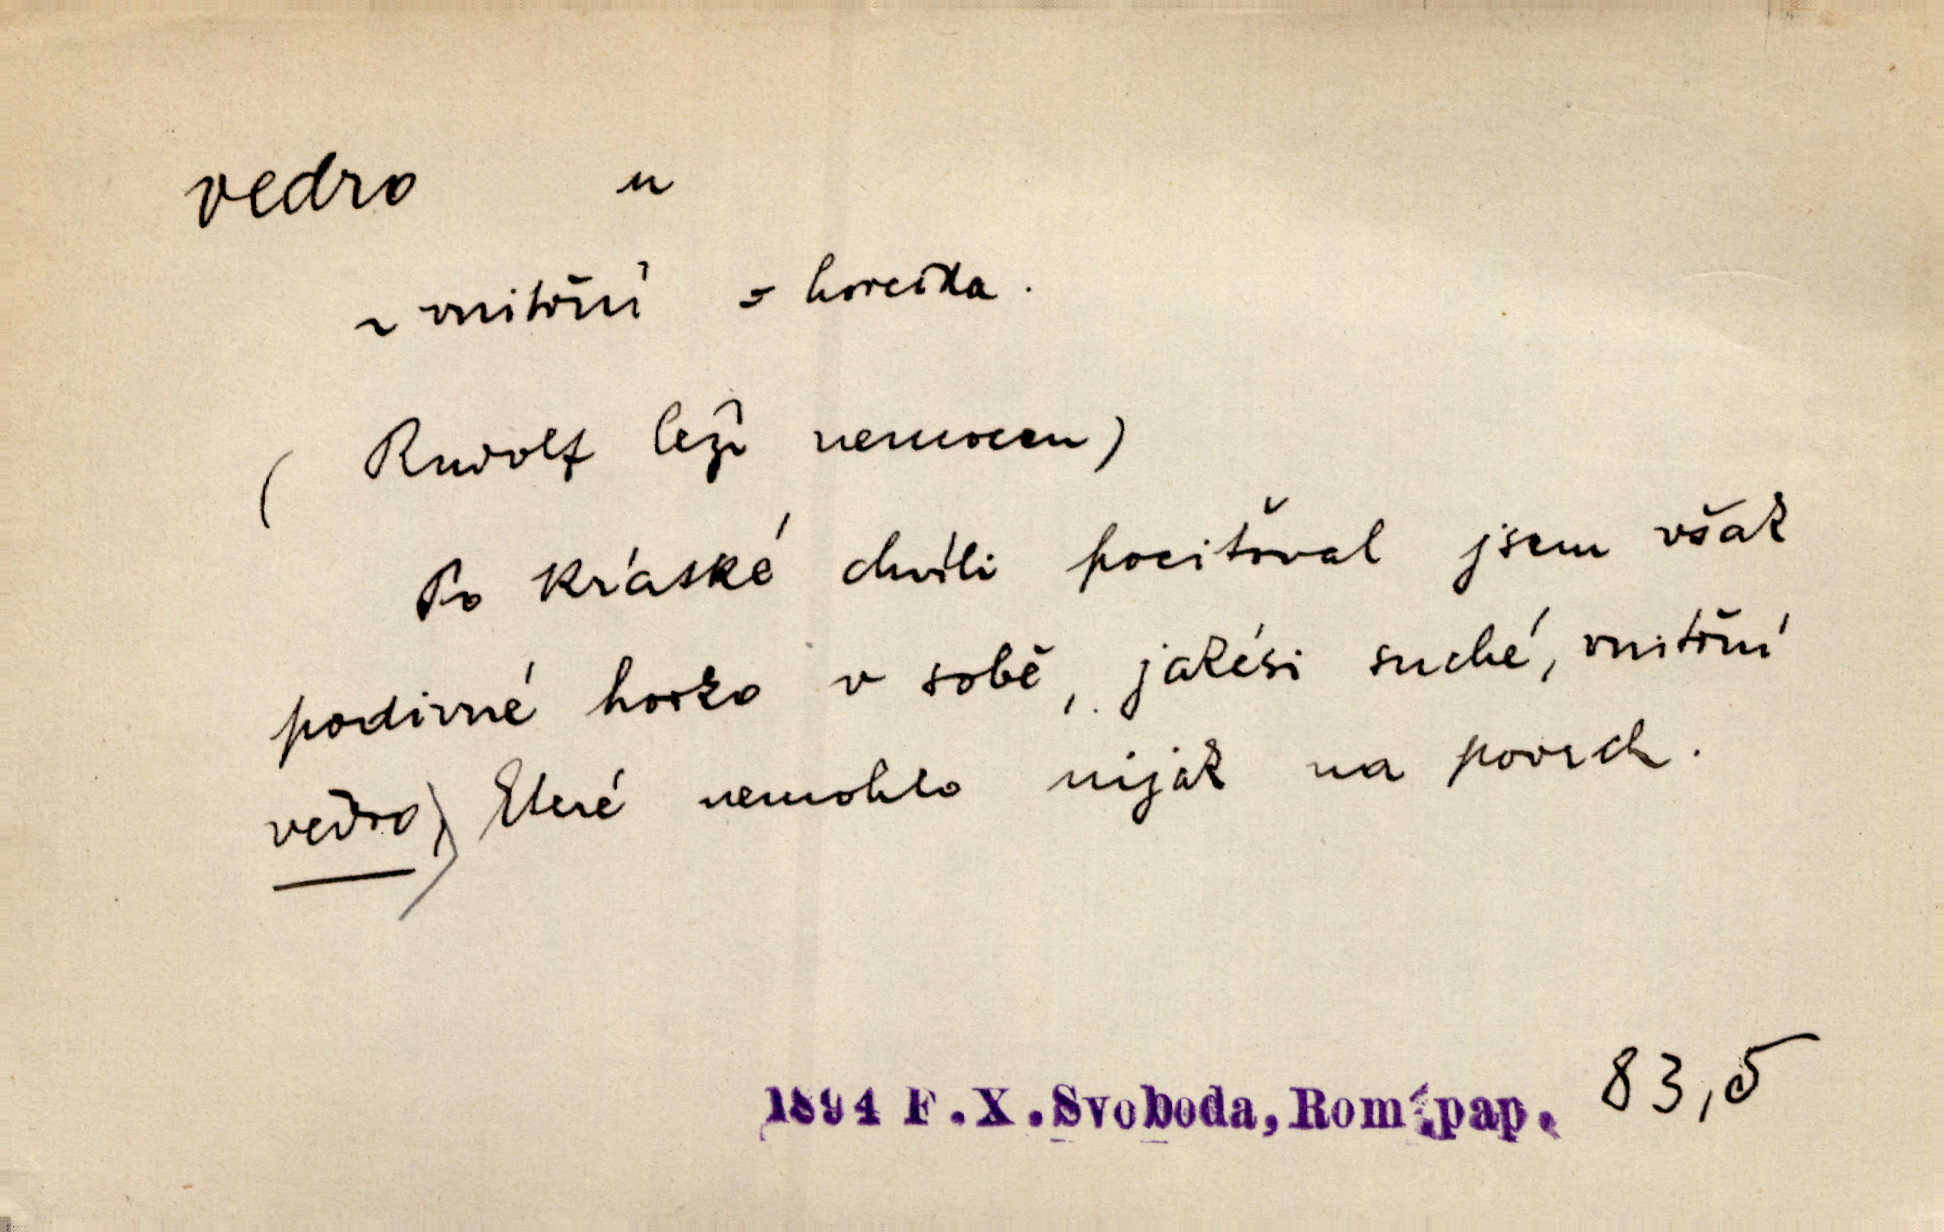 vedro n
~ vnitřní = horečka.
( Rudolf leží nemocen)
Po krátké chvíli pociťoval jsem však
podivné horko v sobě, jakési suché, vnitřní
vedro, které nemohlo nijak na povrch.
1894 F.X.Svoboda, Rom.pap. 83,5